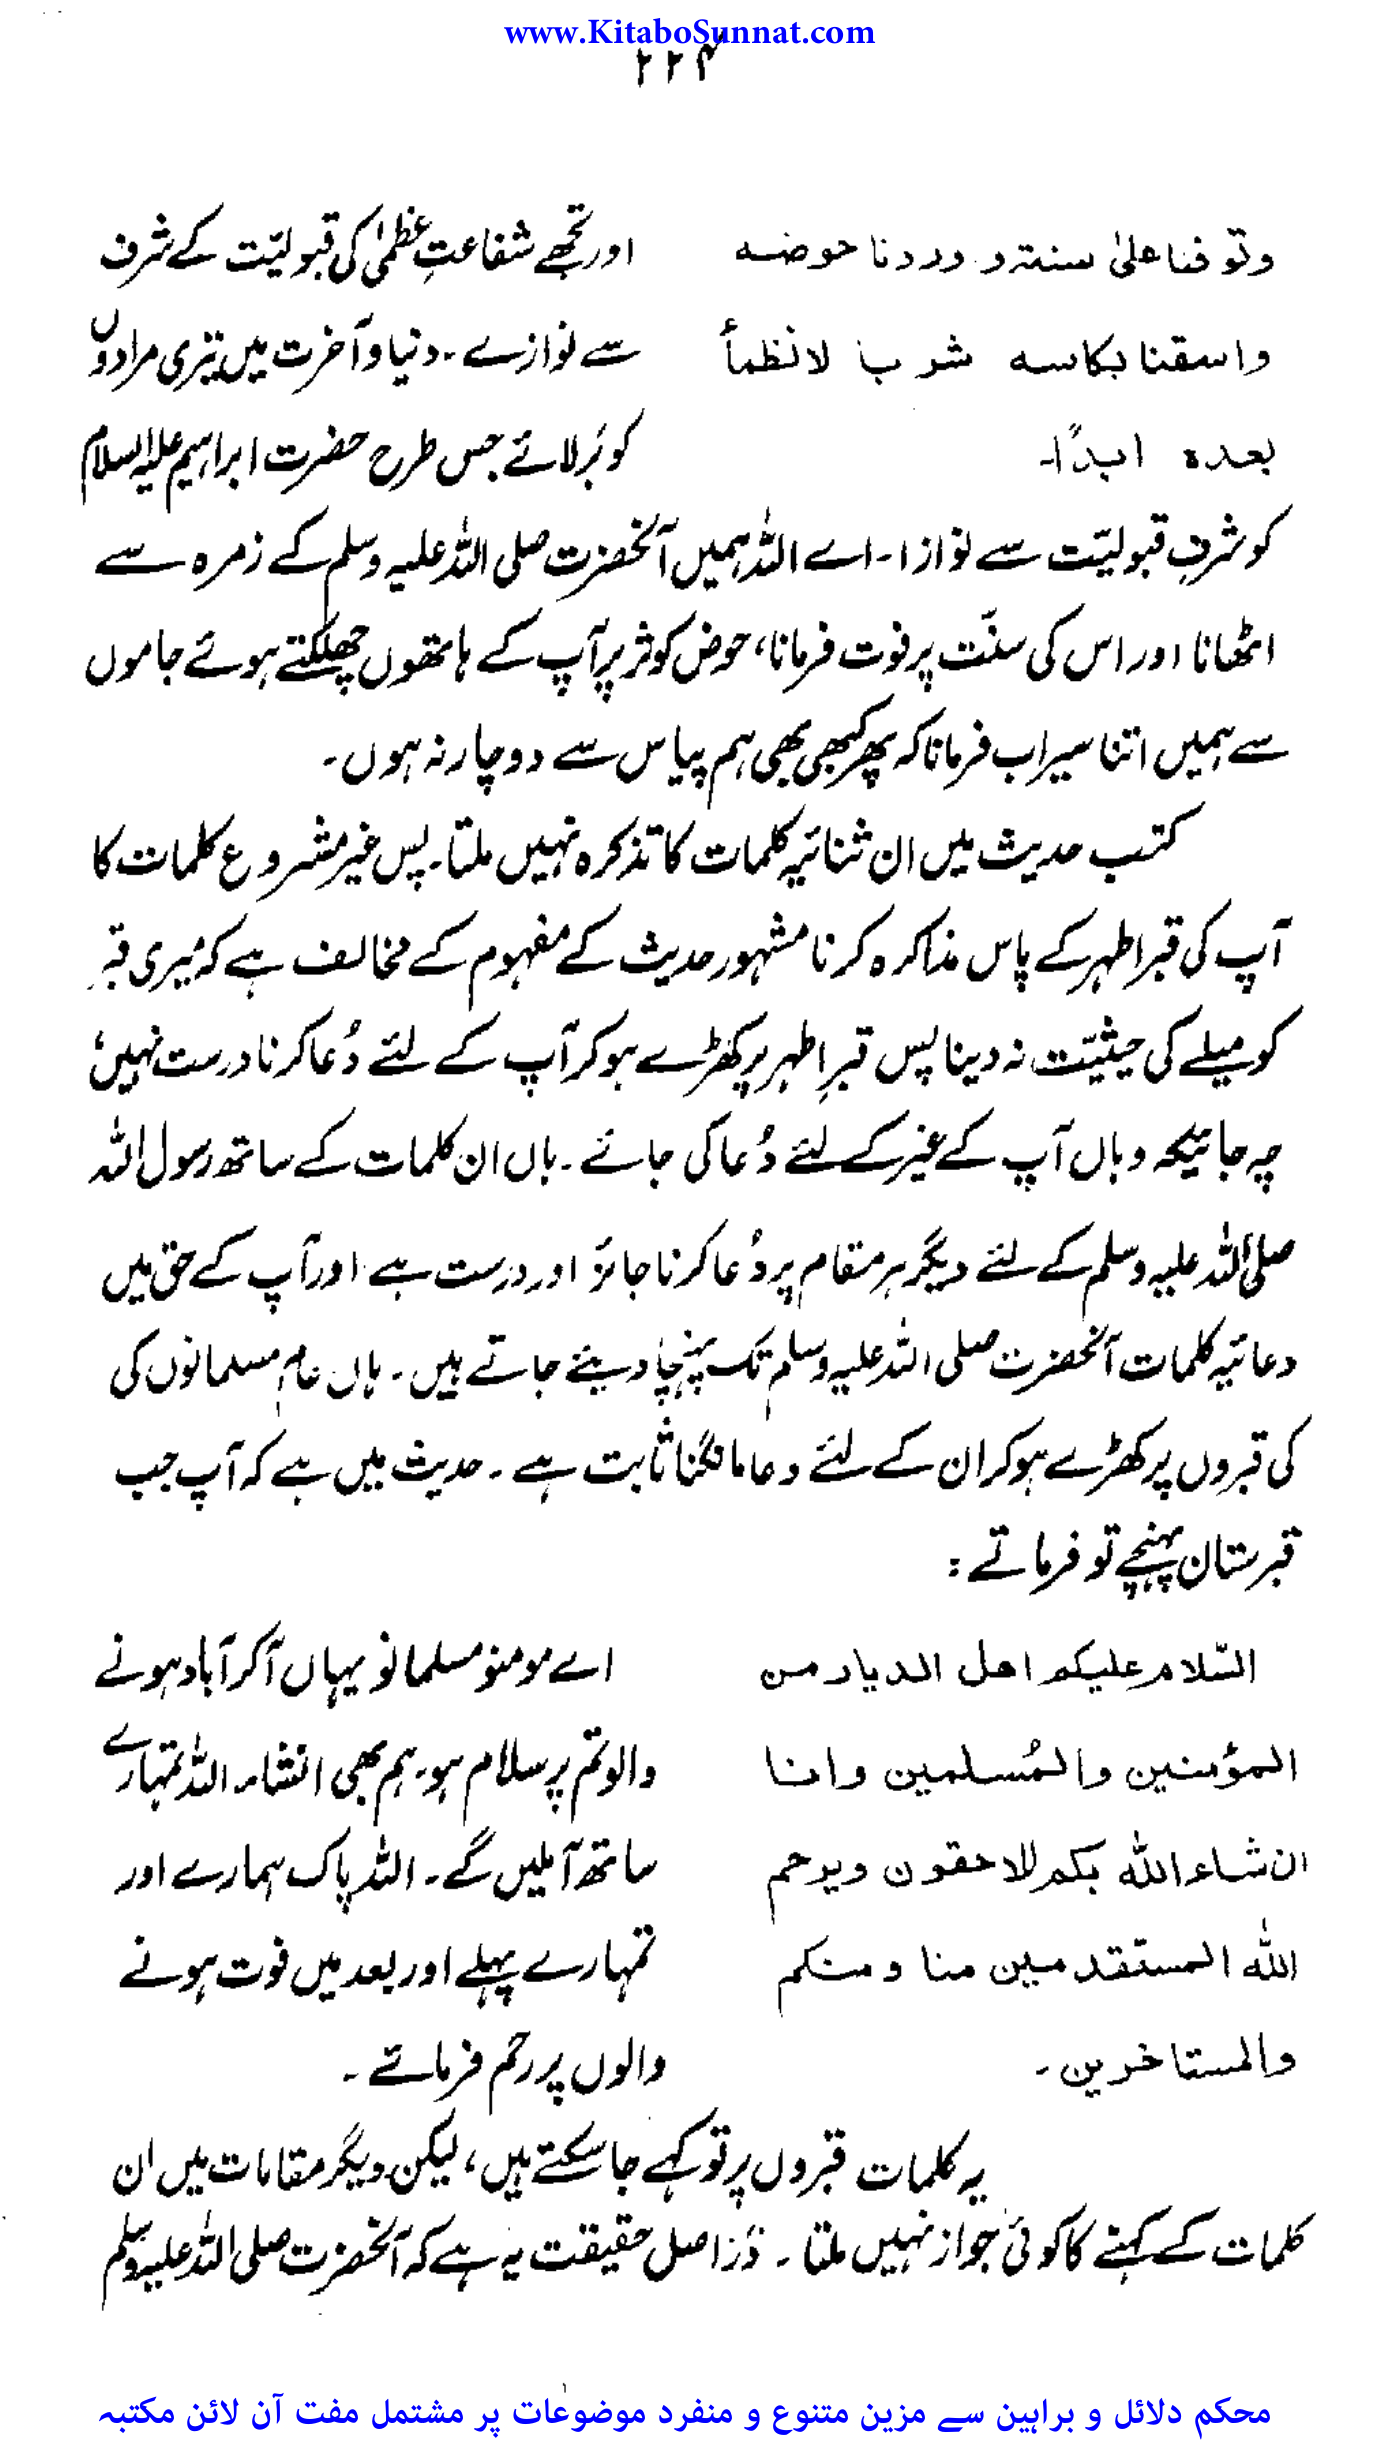 www.KitaboSunnat.com
۲۲۴
وتوفنا علیٰ سنتہ و ردنا حوضہ اور تجھے شفاعتِ عظمیٰ کی قبولیّت کے شرف
واسقنا بکاسہ شربا لانظمأ سے نوازے۔ دنیا وآخرت میں تیری مرادوں
بعدہ ابدًا۔ کو بَرلائے جس طرح حضرت ابراہیم علیہ السلام
کو شرفِ قبولیّت سے نوازا۔ اے اللہ ہمیں آنحضرت صلی اللہ علیہ وسلم کے زمرہ سے
اٹھانا اور اس کی سنّت پر فوت فرمانا، حوض کوثر پر آپ کے ہاتھوں چھلکتے ہوئے جاموں
سے ہمیں اتنا سیراب فرمانا کہ پھر کبھی بھی ہم پیاس سے دوچار نہ ہوں۔
کتب حدیث میں ان ثنائیہ کلمات کا تذکرہ نہیں ملتا۔ پس غیر مشروع کلمات کا
آپ کی قبر اطہر کے پاس مذاکرہ کرنا مشہور حدیث کے مفہوم کے مخالف ہے کہ میری قبر
کو میلے کی حیثیّت نہ دینا پس قبرِ اطہر پر کھڑے ہوکر آپ کے لئے دُعا کرنا درست نہیں
چہ جائیکہ وہاں آپ کے غیر کے لئے دُعا کی جائے۔ ہاں ان کلمات کے ساتھ رسول اللہ
صلی اللہ علیہ وسلم کے لئے دیگر ہر مقام پر دُعا کرنا جائز اور درست ہے اور آپ کے حق میں
دعائیہ کلمات آنحضرت صلی اللہ علیہ وسلم تک پہنچا دیئے جاتے ہیں۔ ہاں عام مسلمانوں کی
کی قبروں پر کھڑے ہوکر ان کے لئے دعا مانگنا ثابت ہے۔ حدیث میں ہے کہ آپ جب
قبرستان پہنچے تو فرماتے:
السّلام علیکم اھل الدیار من اے مومنو مسلمانو یہاں آکر آباد ہونے
المؤمنین والمُسلمین وانا والو تم پر سلام ہو۔ ہم بھی انشاء اللہ تمہارے
ان شاء اللہ بکم للاحقون ویرحم ساتھ آملیں گے۔ اللہ پاک ہمارے اور
اللہ المستقدمین منا ومنکم تمہارے پہلے اور بعد میں فوت ہونے
والمستاخرین۔ والوں پر رحم فرمائے۔
یہ کلمات قبروں پر تو کہے جاسکتے ہیں، لیکن دیگر مقامات میں ان
کلمات کے کہنے کا کوئی جواز نہیں ملتا۔ دَراصل حقیقت یہ ہے کہ آنحضرت صلی اللہ علیہ وسلم
محکم دلائل و براہین سے مزین متنوع و منفرد موضوعات پر مشتمل مفت آن لائن مکتبہ